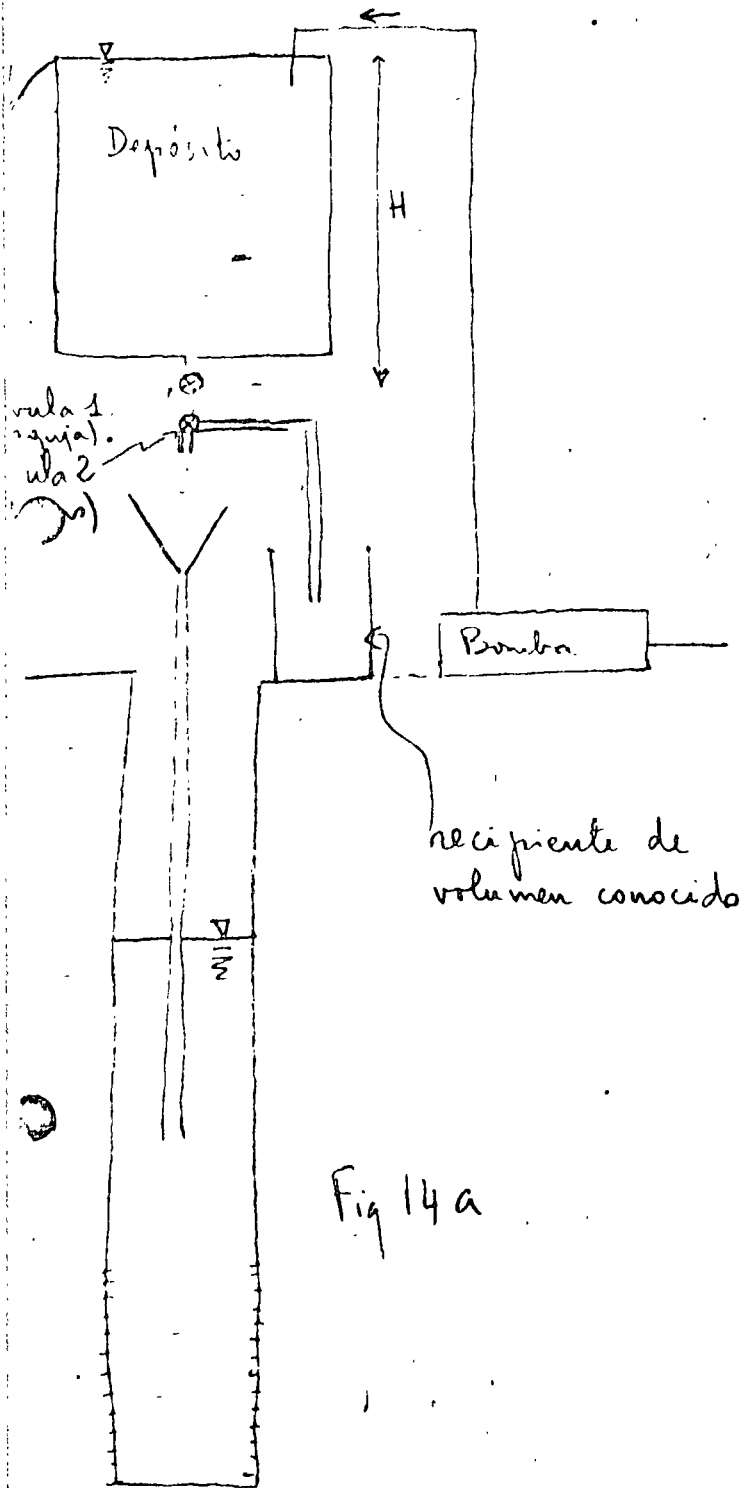 Depósito
H
vula 1
guja).
ula 2
s)
Bomba
recipiente de
volumen conocido
Fig 14 a